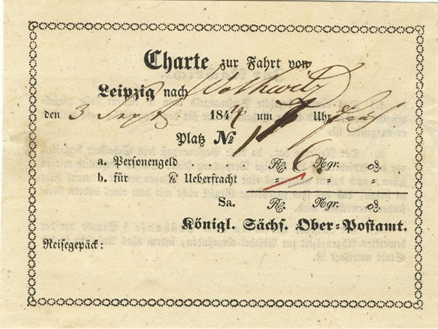 Charte zur Fahrt von
Leipzig nach
den 3 Sept 1844 um 7 Uhr früh
Platz № 1
a. Personengeld 6 Ngr.
b. für ℔ Ueberfracht " "
Sa. Ngr.
Königl. Sächs. Ober-Postamt.
Reisegepäck: